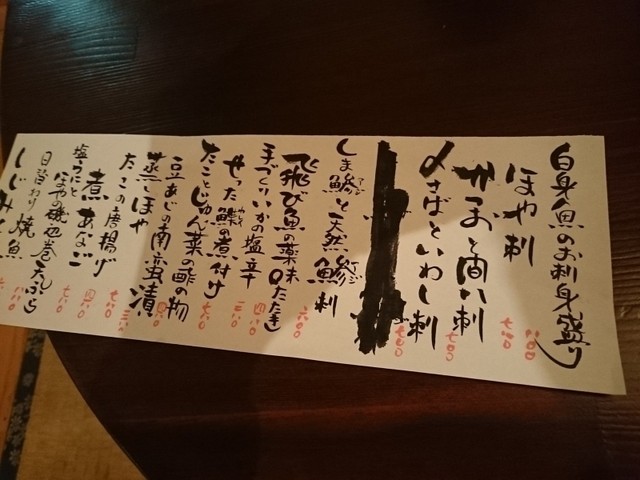 白身魚のお刺身盛り
ほや刺 七八〇
かつおと間八刺 七八〇
〆さばといわし刺 七八〇
しま鯵と天然鯵刺
飛び魚の薬味たたき 六八〇
手づくりいかの塩辛 四八〇
やった鰈の煮付け
たことじゅん菜の酢の物 七八〇
豆あじの南蛮漬
蒸しほや
たこの唐揚げ 七八〇
煮あなご
塩うにとほやの磯辺巻天ぷら
日替わり焼魚
しじみ